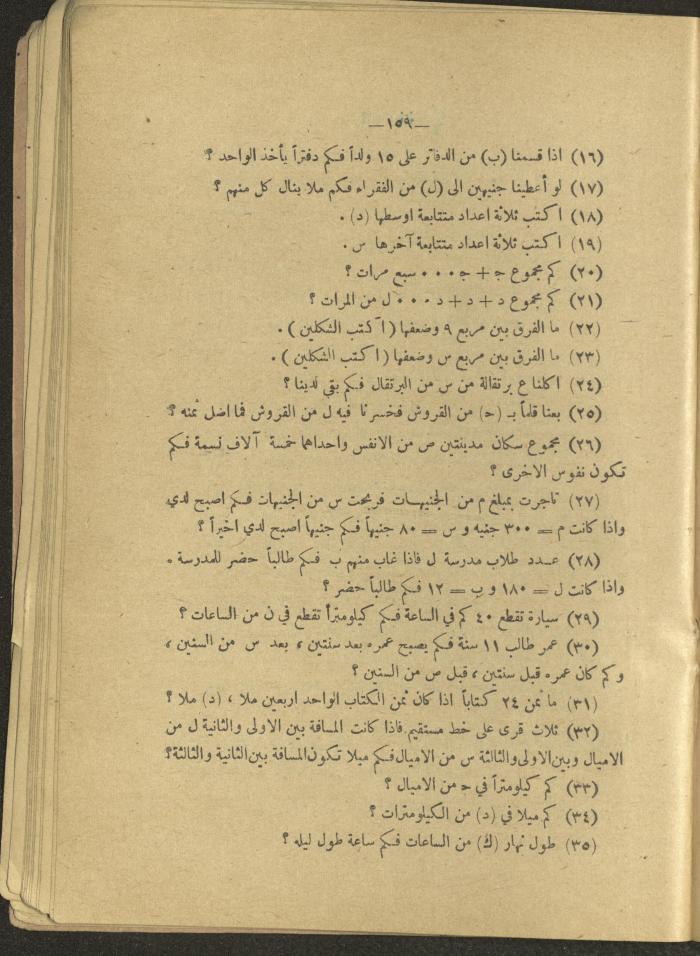 —١٥٩—
(١٦) اذا قسمنا (ب) من الدفاتر على ١٥ ولداً فكم دفتراً يأخذ الواحد ؟
(١٧) لو أعطينا جنيهين الى (ل) من الفقراء فكم ملا ينال كل منهم ؟
(١٨) اكتب ثلاثة اعداد متتابعة اوسطها (د) .
(١٩) اكتب ثلاثة اعداد متتابعة آخرها س .
(٢٠) كم مجموع ج + ج ٠٠٠ سبع مرات ؟
(٢١) كم مجموع د + د + د ٠٠٠ ل من المرات ؟
(٢٢) ما الفرق بين مربع ٩ وضعفها ( اكتب الشكلين ) .
(٢٣) ما الفرق بين مربع س وضعفها ( اكتب الشكلين ) .
(٢٤) اكلنا ع برتقالة من س من البرتقال فكم بقي لدينا ؟
(٢٥) بعنا قلماً بـ (ح) من القروش فخسرنا فيه ل من القروش فما اصل ثمنه ؟
(٢٦) مجموع سكان مدينتين ص من الانفس واحداهما خمسة آلاف نسمة فكم
تكون نفوس الاخرى ؟
(٢٧) تاجرت بمبلغ م من الجنيهات فربحت س من الجنيهات فكم اصبح لدي
واذا كانت م = ٣٠٠ جنيه و س = ٨٠ جنيهاً فكم جنيهاً اصبح لدي اخيراً ؟
(٢٨) عدد طلاب مدرسة ل فاذا غاب منهم ب فكم طالباً حضر للمدرسة .
واذا كانت ل = ١٨٠ و ب = ١٢ فكم طالباً حضر ؟
(٢٩) سيارة تقطع ٤٠ كم في الساعة فكم كيلومتراً تقطع في ن من الساعات ؟
(٣٠) عمر طالب ١١ سنة فكم يصبح عمره بعد سنتين ، بعد س من السنين ،
وكم كان عمره قبل سنتين ، قبل ص من السنين ؟
(٣١) ما ثمن ٢٤ كتاباً اذا كان ثمن الكتاب الواحد اربعين ملا ، (د) ملا ؟
(٣٢) ثلاث قرى على خط مستقيم فاذا كانت المسافة بين الاولى والثانية ل من
الاميال وبين الاولى والثالثة س من الاميال فكم ميلا تكون المسافة بين الثانية والثالثة ؟
(٣٣) كم كيلومتراً في ح من الاميال ؟
(٣٤) كم ميلا في (د) من الكيلومترات ؟
(٣٥) طول نهار (ك) من الساعات فكم ساعة طول ليله ؟